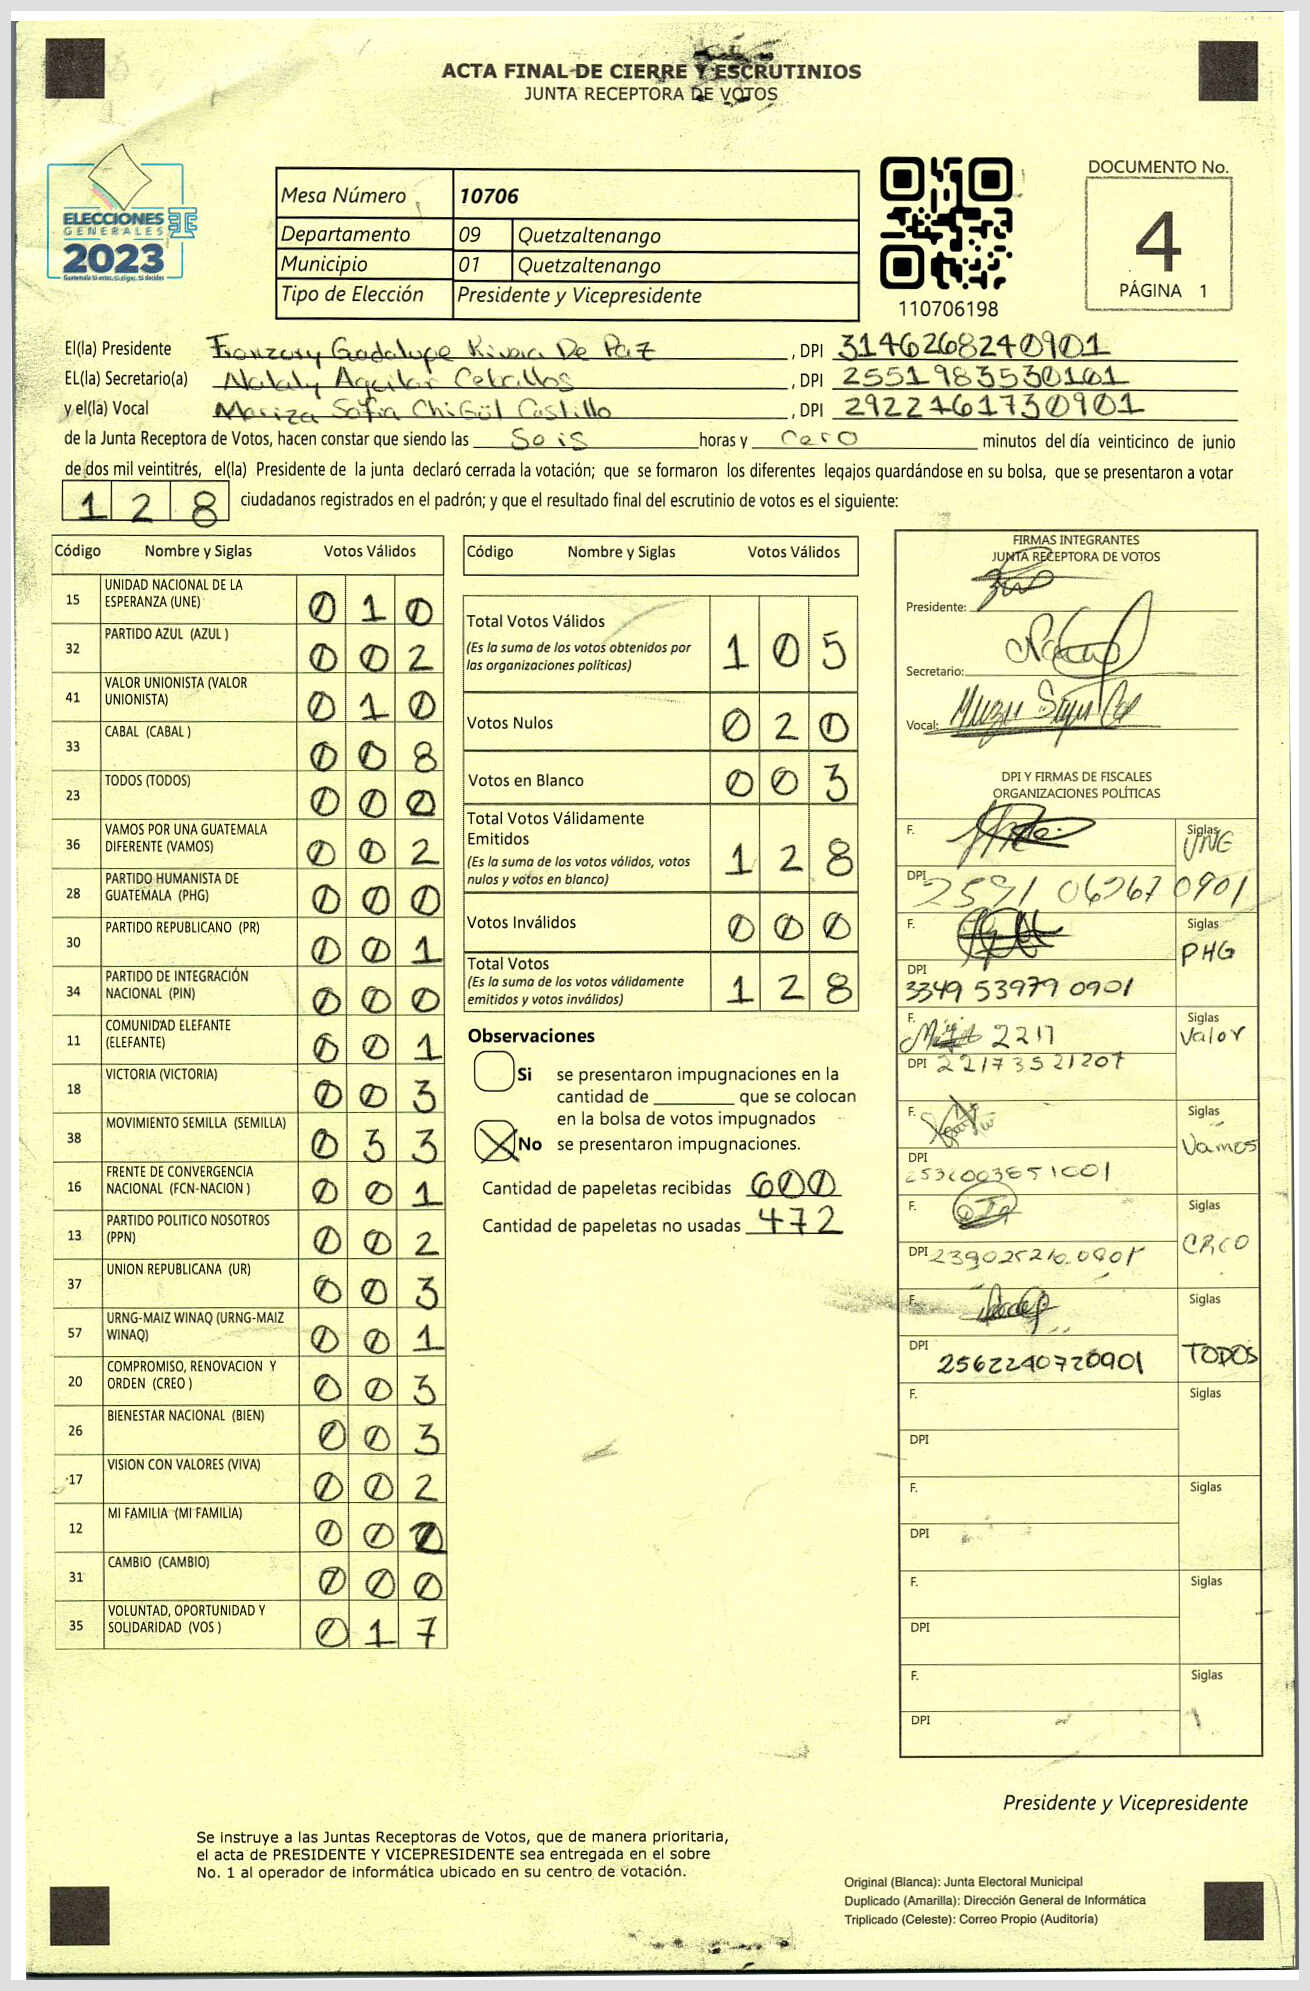 ACTA FINAL DE CIERRE Y ESCRUTINIOS
JUNTA RECEPTORA DE VOTOS
ELECCIONES
GENERALES
2023
Guatemala Si entes, Si eliges, Si decides
Mesa Número 10706
Departamento 09 Quetzaltenango
Municipio 01 Quetzaltenango
Tipo de Elección Presidente y Vicepresidente
110706198
DOCUMENTO No.
4
PÁGINA 1
El(la) Presidente Guadalupe Rivera De Paz , DPI 3146268240901
EL(la) Secretario(a) Nataly Aguilar Ceballos , DPI 2551983530101
y el(la) Vocal Mariza Sofia ChiGüil Castillo , DPI 2922761730901
de la Junta Receptora de Votos, hacen constar que siendo las Seis horas y cero minutos del día veinticinco de junio
de dos mil veintitrés, el(la) Presidente de la junta declaró cerrada la votación; que se formaron los diferentes legajos guardándose en su bolsa, que se presentaron a votar
128 ciudadanos registrados en el padrón; y que el resultado final del escrutinio de votos es el siguiente:
Código Nombre y Siglas Votos Válidos
15 UNIDAD NACIONAL DE LA ESPERANZA (UNE) 010
32 PARTIDO AZUL (AZUL ) 002
41 VALOR UNIONISTA (VALOR UNIONISTA) 010
33 CABAL (CABAL ) 008
23 TODOS (TODOS) 000
36 VAMOS POR UNA GUATEMALA DIFERENTE (VAMOS) 002
28 PARTIDO HUMANISTA DE GUATEMALA (PHG) 000
30 PARTIDO REPUBLICANO (PR) 001
34 PARTIDO DE INTEGRACIÓN NACIONAL (PIN) 000
11 COMUNIDAD ELEFANTE (ELEFANTE) 001
18 VICTORIA (VICTORIA) 003
38 MOVIMIENTO SEMILLA (SEMILLA) 033
16 FRENTE DE CONVERGENCIA NACIONAL (FCN-NACION ) 001
13 PARTIDO POLITICO NOSOTROS (PPN) 002
37 UNION REPUBLICANA (UR) 003
57 URNG-MAIZ WINAQ (URNG-MAIZ WINAQ) 001
20 COMPROMISO, RENOVACION Y ORDEN (CREO ) 003
26 BIENESTAR NACIONAL (BIEN) 003
17 VISION CON VALORES (VIVA) 002
12 MI FAMILIA (MI FAMILIA) 00
31 CAMBIO (CAMBIO) 000
35 VOLUNTAD, OPORTUNIDAD Y SOLIDARIDAD (VOS ) 017
Código Nombre y Siglas Votos Válidos
Total Votos Válidos 105
(Es la suma de los votos obtenidos por
las organizaciones políticas)
Votos Nulos 020
Votos en Blanco 003
Total Votos Válidamente
Emitidos 128
(Es la suma de los votos válidos, votos
nulos y votos en blanco)
Votos Inválidos 000
Total Votos 128
(Es la suma de los votos válidamente
emitidos y votos inválidos)
Observaciones
Si se presentaron impugnaciones en la
cantidad de ________ que se colocan
en la bolsa de votos impugnados
No se presentaron impugnaciones.
Cantidad de papeletas recibidas 600
Cantidad de papeletas no usadas 472
FIRMAS INTEGRANTES
JUNTA RECEPTORA DE VOTOS
Presidente:
Secretario:
Vocal:
DPI Y FIRMAS DE FISCALES
ORGANIZACIONES POLÍTICAS
F. Siglas UNE
DPI 2591 06267 0901
F. Siglas PHG
DPI 3349 53979 0901
F. 2217 Siglas Valor
DPI 22173521207
F. Siglas Vamos
DPI
F. Siglas CREO
DPI
F. Siglas TODOS
DPI 2562240720901
F. Siglas
DPI
F. Siglas
DPI
F. Siglas
DPI
F. Siglas
DPI
Presidente y Vicepresidente
Se instruye a las Juntas Receptoras de Votos, que de manera prioritaria,
el acta de PRESIDENTE Y VICEPRESIDENTE sea entregada en el sobre
No. 1 al operador de informática ubicado en su centro de votación.
Original (Blanca): Junta Electoral Municipal
Duplicado (Amarilla): Dirección General de Informática
Triplicado (Celeste): Correo Propio (Auditoría)